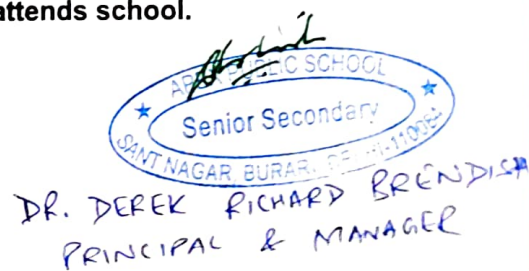 attends school.
PUBLIC SCHOOL
Senior Secondary
SANT NAGAR, BURARI, DELHI-110084
DR. DEREK RICHARD BRENDISH
PRINCIPAL & MANAGER